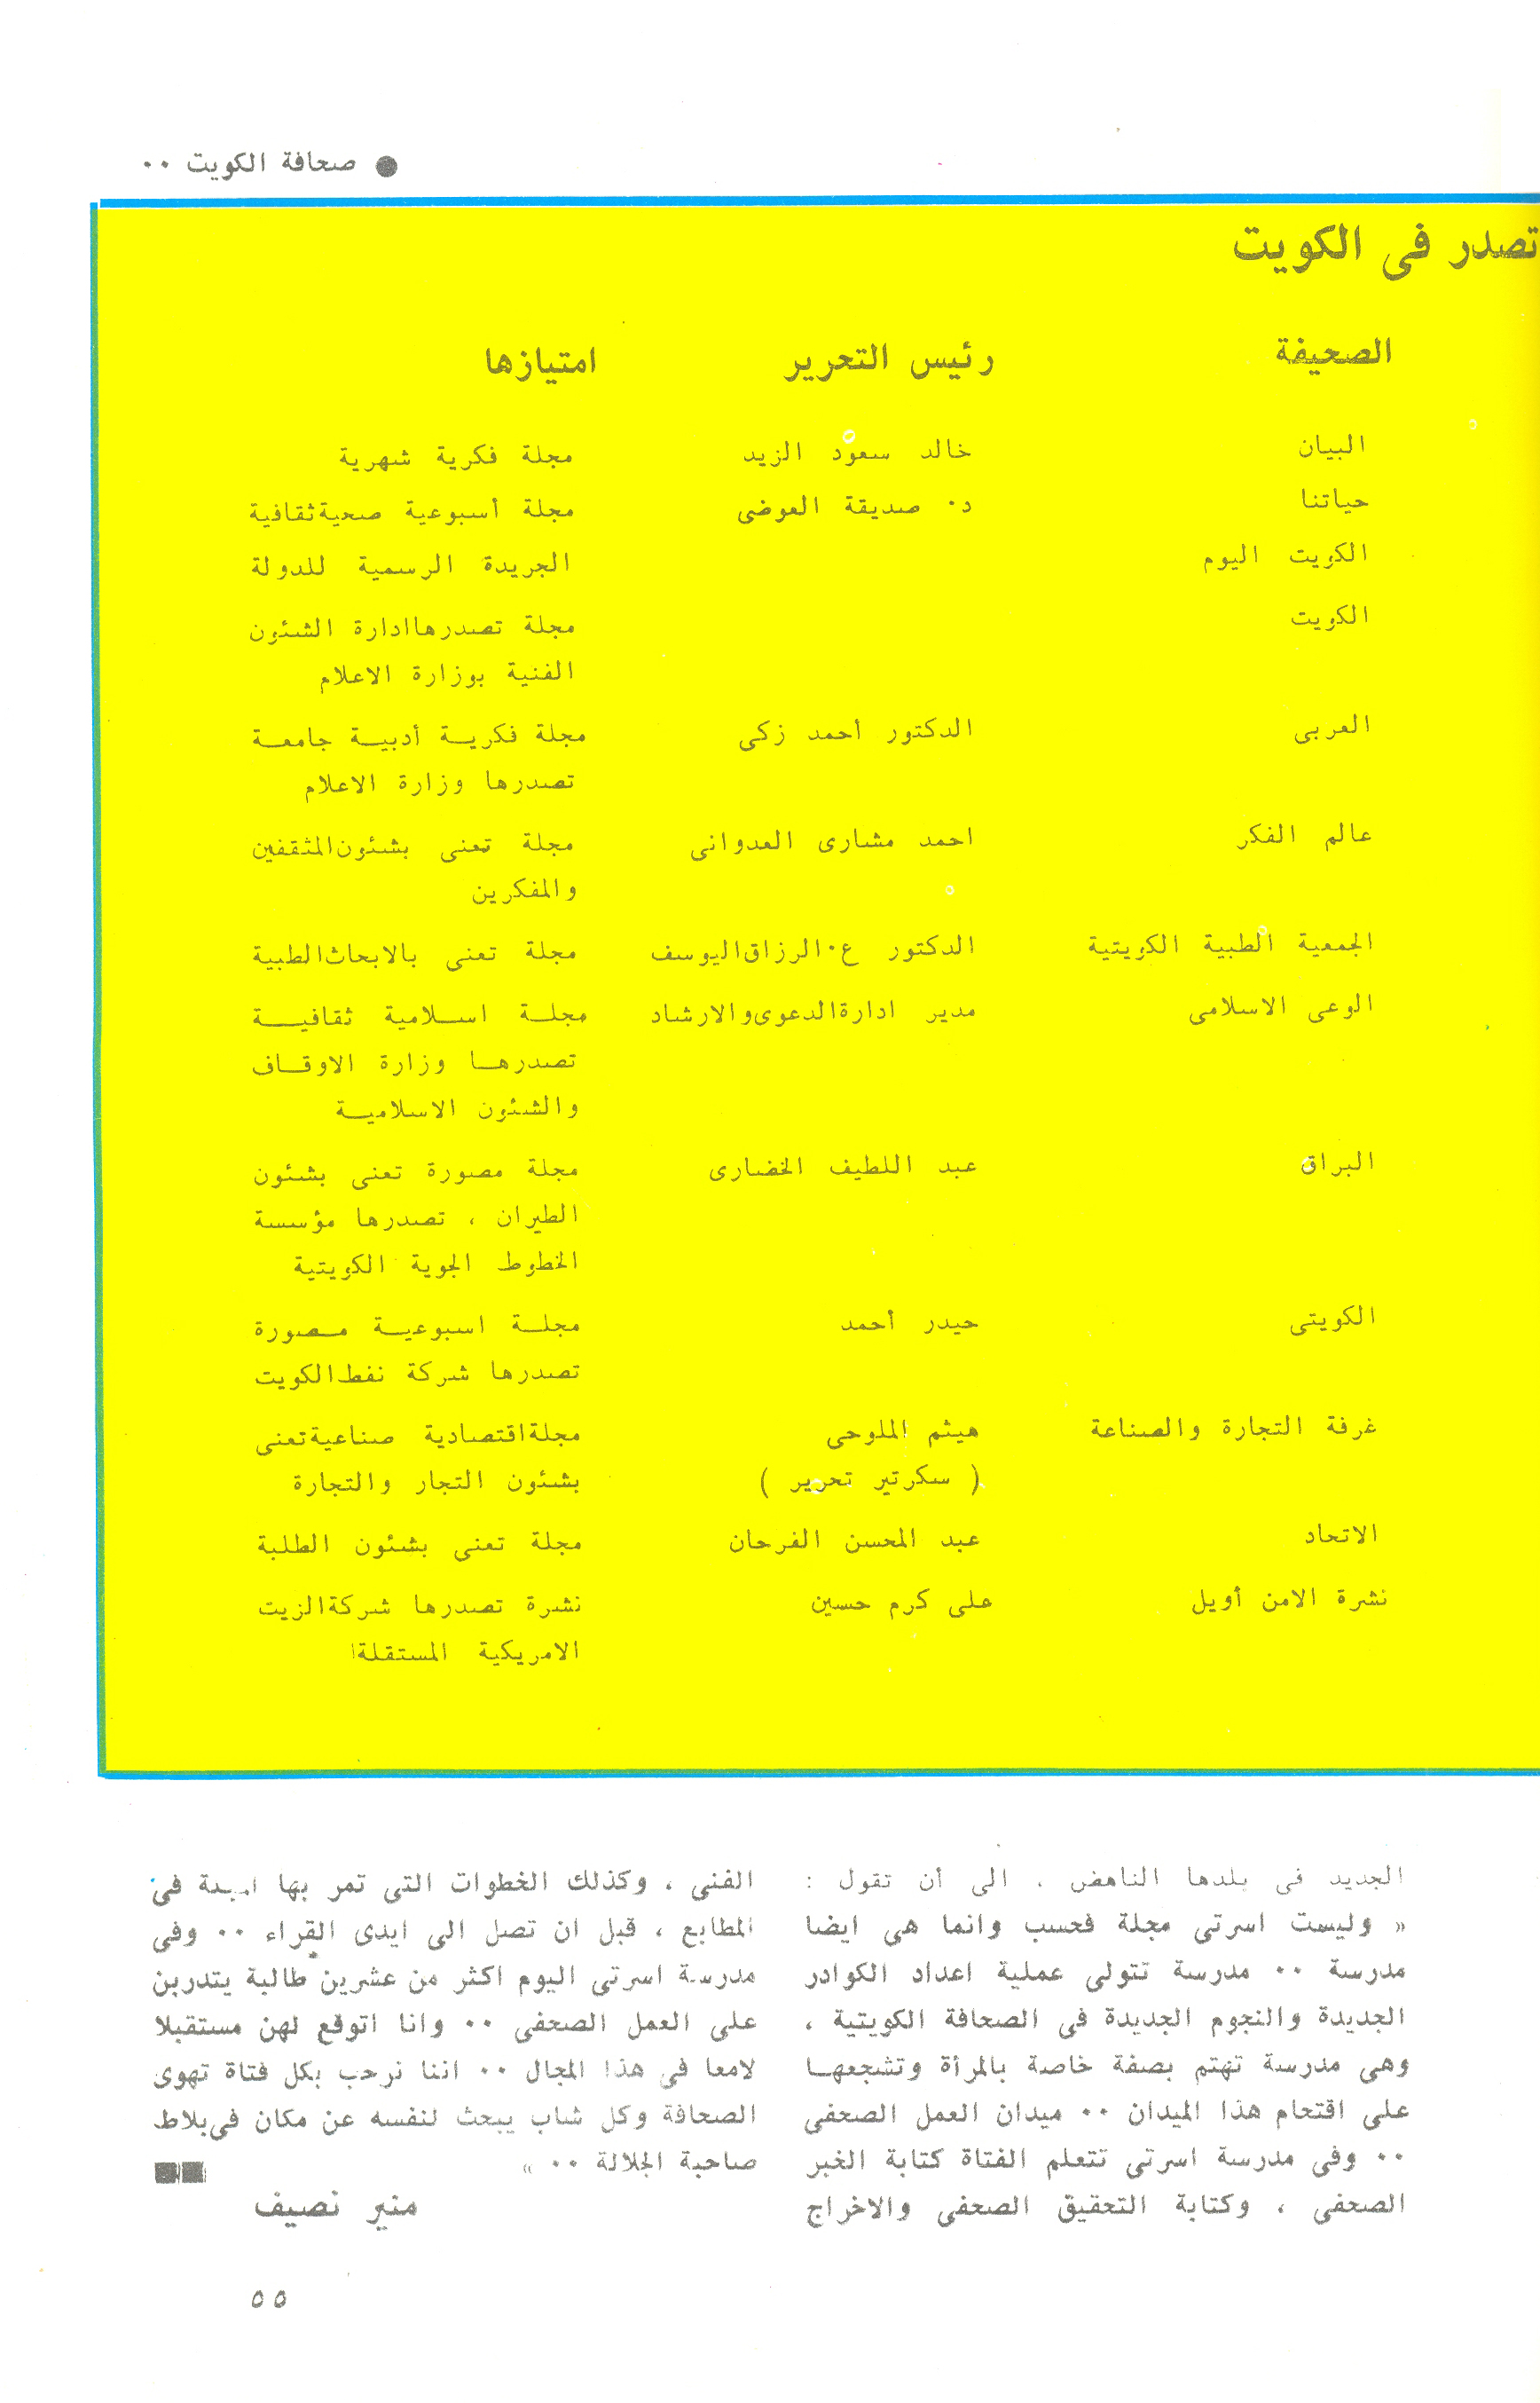 ● صحافة الكويت ٠٠
تصدر فى الكويت
الصحيفة رئيس التحرير امتيازها
البيان خالد سعود الزيد مجلة فكرية شهرية
حياتنا د٠ صديقة العوضى مجلة أسبوعية صحية ثقافية
الكويت اليوم الجريدة الرسمية للدولة
الكويت مجلة تصدرها ادارة الشئون
الفنية بوزارة الاعلام
العربى الدكتور أحمد زكى مجلة فكريـة أدبيـة جامعـة
تصدرها وزارة الاعلام
عالم الفكر احمد مشارى العدوانى مجلة تعنى بشئون المثقفين
والمفكرين
الجمعية الطبية الكويتية الدكتور ع٠الرزاق اليوسف مجلة تعنى بالابحاث الطبية
الوعى الاسلامى مدير ادارة الدعوى والارشاد مجلـة اسـلامية ثقافيـة
تصدرهـا وزارة الاوقـاف
والشئون الاسلاميـة
البراق عبد اللطيف الخضارى مجلة مصورة تعنى بشئون
الطيران ، تصدرها مؤسسة
الخطوط الجوية الكويتية
الكويتى حيدر أحمد مجلـة اسبوعيـة مـصورة
تصدرها شركة نفط الكويت
غرفة التجارة والصناعة هيثم الملوحى مجلة اقتصادية صناعية تعنى
( سكرتير تحرير ) بشئون التجار والتجارة
الاتحاد عبد المحسن الفرحان مجلة تعنى بشئون الطلبة
نشرة الامن أويل على كرم حسين نشرة تصدرها شركة الزيت
الامريكية المستقلة
الجديد فى بلدها الناهض ، الى أن تقول :
« وليست اسرتى مجلة فحسب وانما هى ايضا
مدرسة ٠٠ مدرسة تتولى عملية اعداد الكوادر
الجديدة والنجوم الجديدة فى الصحافة الكويتية ،
وهى مدرسة تهتم بصفة خاصة بالمرأة وتشجعهـا
على اقتحام هذا الميدان ٠٠ ميدان العمل الصحفى
٠٠ وفى مدرسة اسرتى تتعلم الفتاة كتابة الخبر
الصحفى ، وكتابة التحقيق الصحفى والاخراج
الفنى ، وكذلك الخطوات التى تمر بها فى
المطابع ، قبل ان تصل الى ايدى القراء ٠٠ وفى
مدرسة اسرتى اليوم اكثر من عشرين طالبة يتدربن
على العمل الصحفى ٠٠ وانا اتوقع لهن مستقبلا
لامعا فى هذا المجال ٠٠ اننا نرحب بكل فتاة تهوى
الصحافة وكل شاب يبحث لنفسه عن مكان فى بلاط
صاحبة الجلالة ٠٠ »
منير نصيف
٥٥